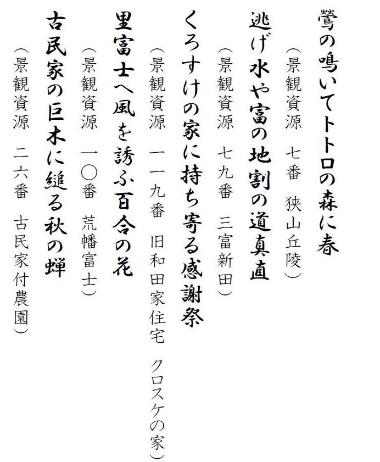 鶯の鳴いてトトロの森に春
（景観資源　七番　狭山丘陵）
逃げ水や富の地割の道真直
（景観資源　七九番　三富新田）
くろすけの家に持ち寄る感謝祭
（景観資源　一一九番　旧和田家住宅　クロスケの家）
里富士へ風を誘ふ百合の花
（景観資源　一〇番　荒幡富士）
古民家の巨木に縋る秋の蝉
（景観資源　二六番　古民家付農園）